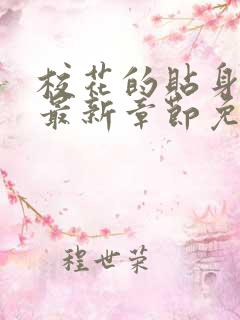 校花的贴身
最新章节免
程世荣